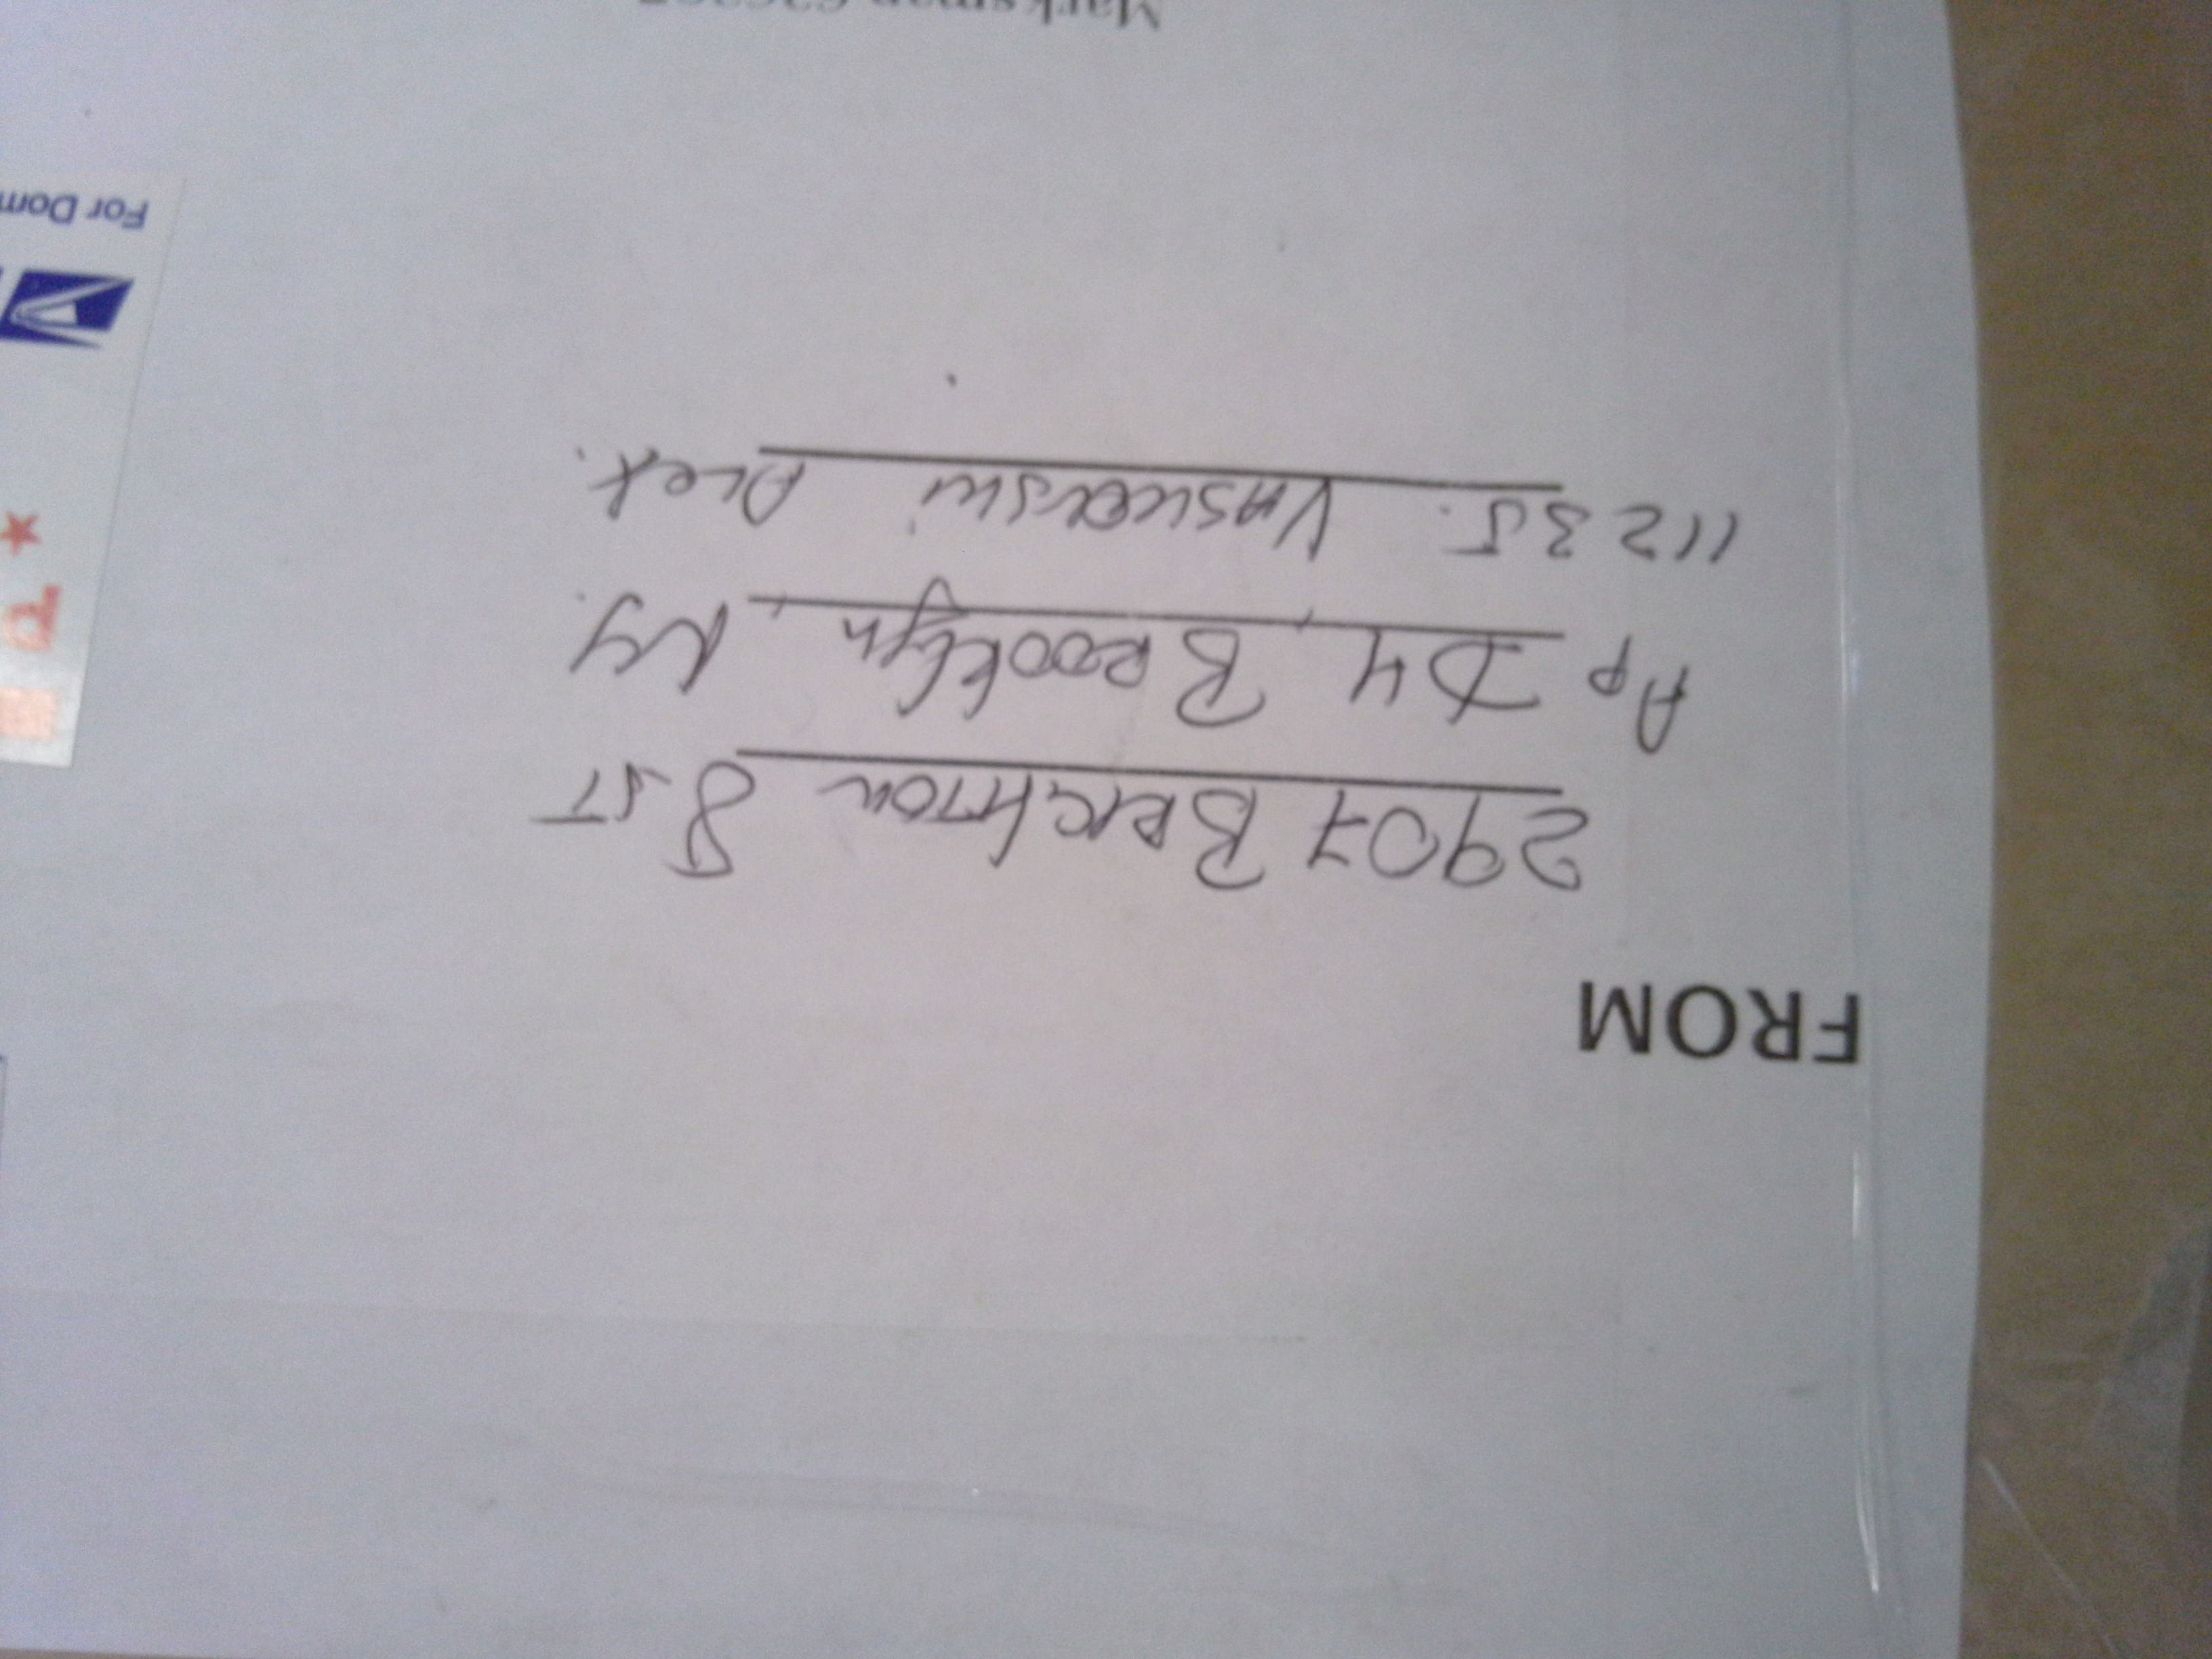 FROM
2907 BRIGHTON 8 ST
Ap D4, BROOKlyn, Ny.
11235. Alex.
For Dom
P